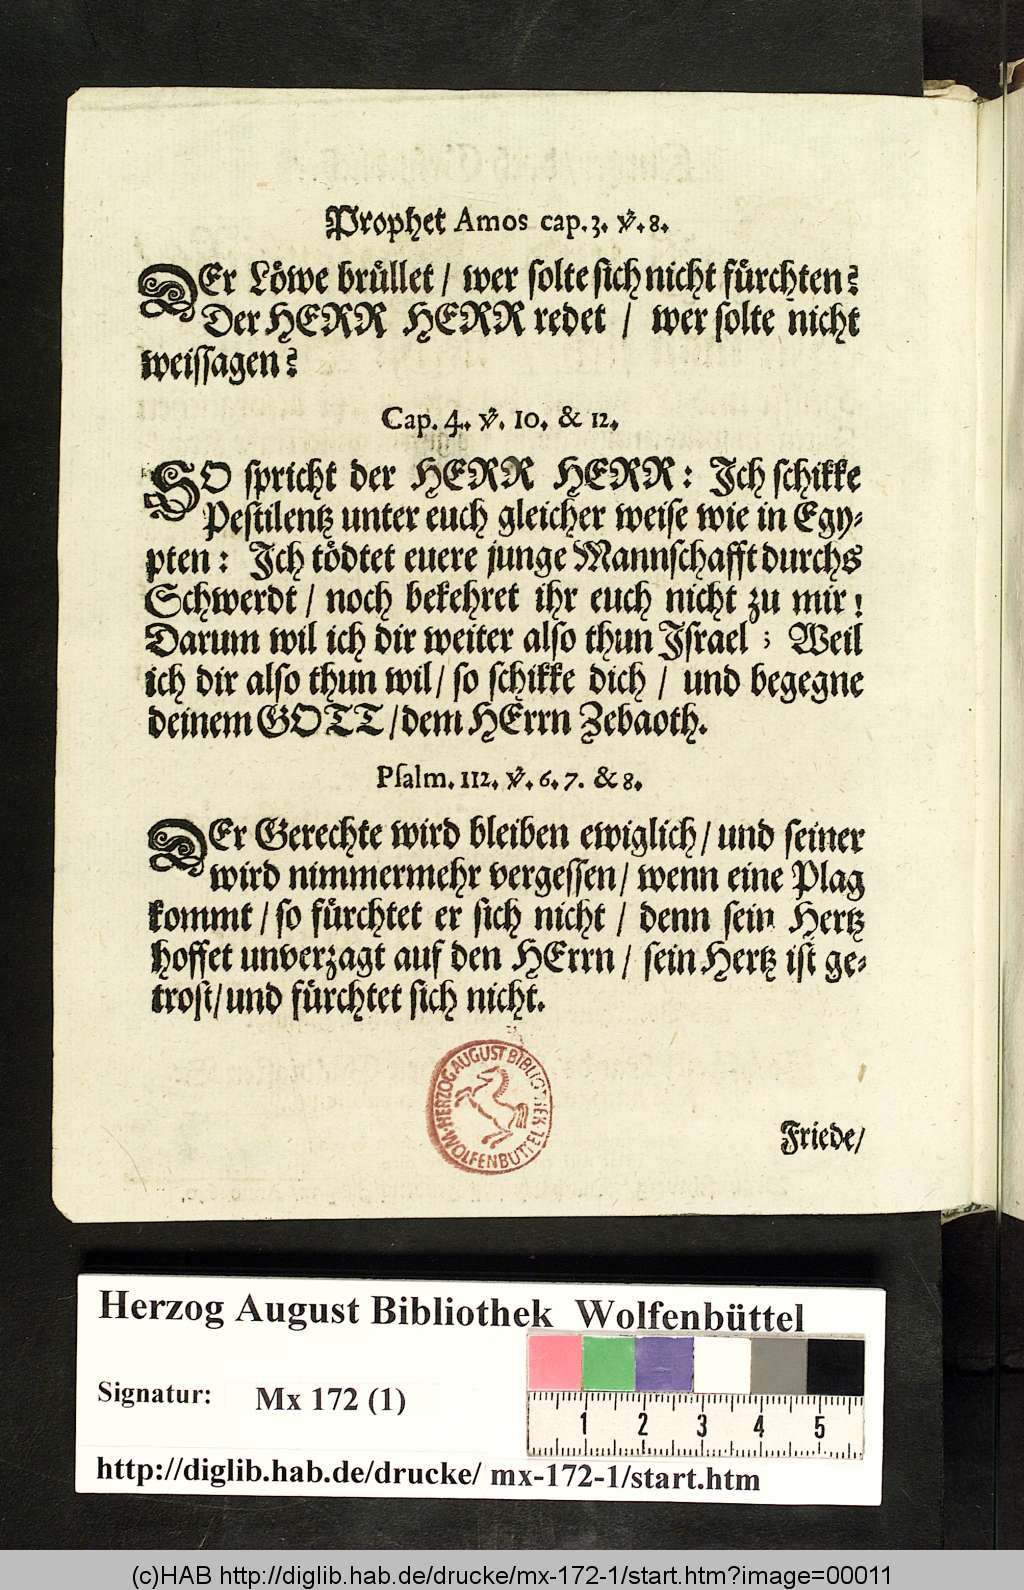 Prophet Amos cap. 3. ℣. 8.
DEr Löwe brüllet / wer solte sich nicht fürchten?
Der HERR HERR redet / wer solte nicht
weissagen?
Cap. 4. ℣. 10. & 12.
SO spricht der HERR HERR: Ich schikke
Pestilentz unter euch gleicher weise wie in Egy-
pten: Ich tödtet euere junge Mannschafft durchs
Schwerdt / noch bekehret ihr euch nicht zu mir!
Darum wil ich dir weiter also thun Israel; Weil
ich dir also thun wil / so schikke dich / und begegne
deinem GOTT / dem HErrn Zebaoth.
Psalm. 112. ℣. 6. 7. & 8.
DEr Gerechte wird bleiben ewiglich / und seiner
wird nimmermehr vergessen / wenn eine Plag
kommt / so fürchtet er sich nicht / denn sein Hertz
hoffet unverzagt auf den HErrn / sein Hertz ist ge-
trost / und fürchtet sich nicht.
HERZOG AUGUST BIBLIOTHEK
WOLFENBÜTTEL
Friede /
Herzog August Bibliothek Wolfenbüttel
Signatur: Mx 172 (1)
1 2 3 4 5
http://diglib.hab.de/drucke/ mx-172-1/start.htm
(c)HAB http://diglib.hab.de/drucke/mx-172-1/start.htm?image=00011